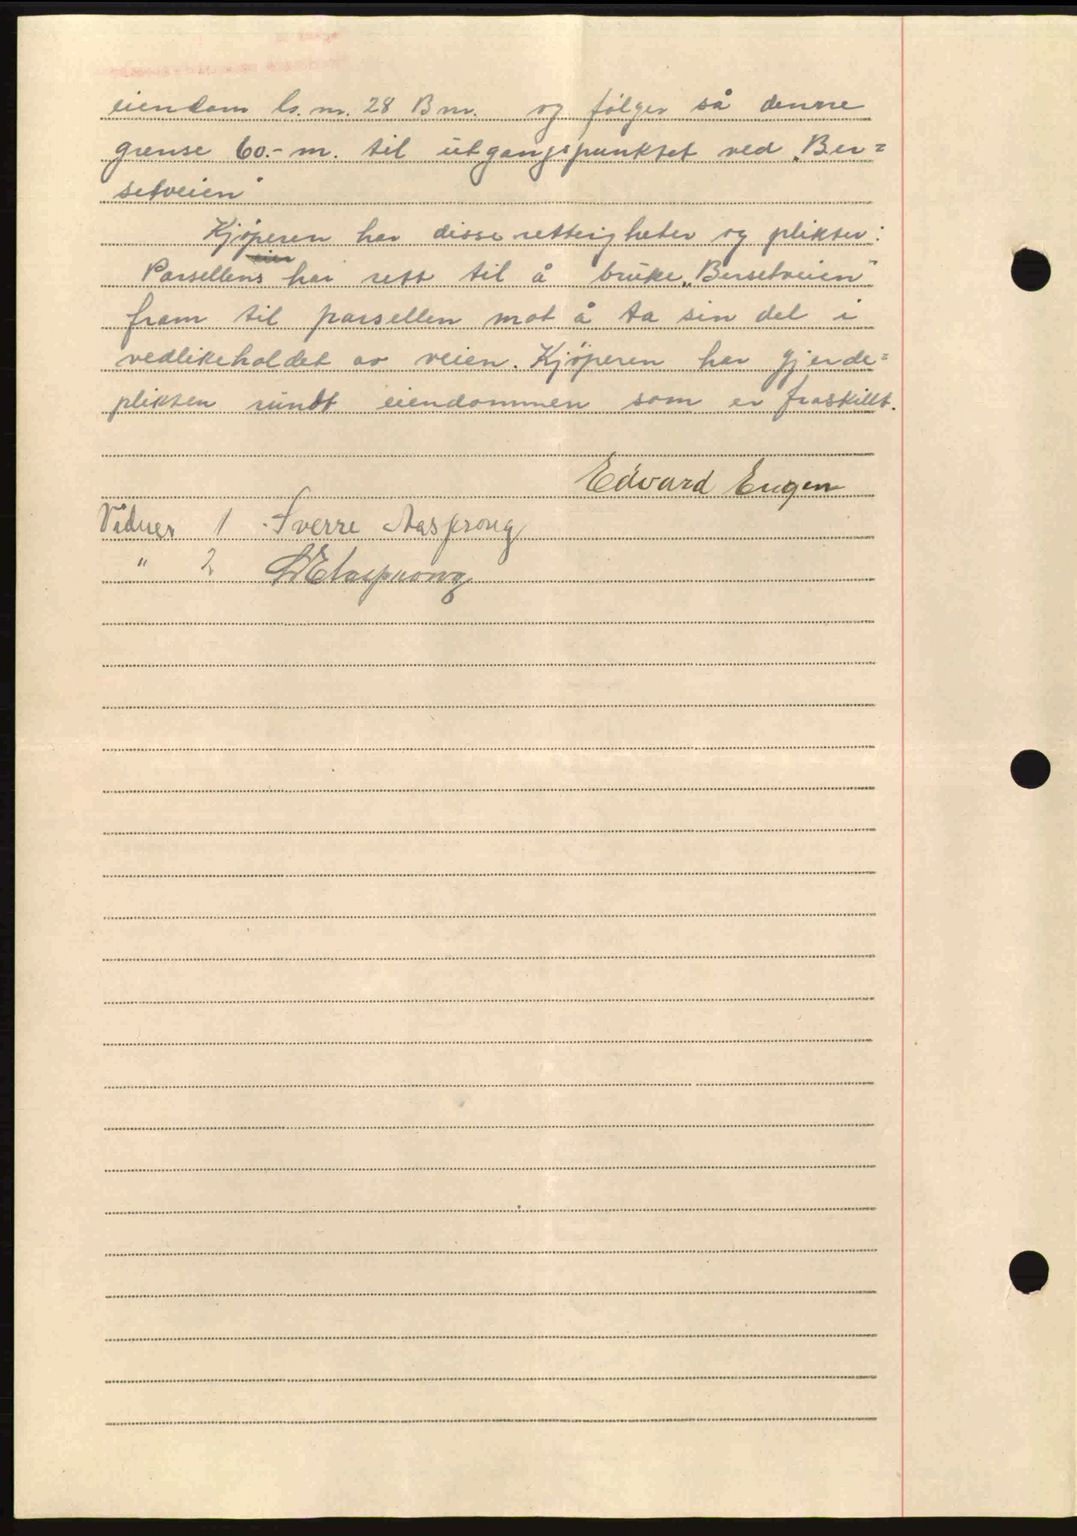 eiendom G. nr. 28 B nr. og følger så denne
grense 60.- m. til utgangspunktet ved „Ber=
setveien"
Kjøperen har disse rettigheter og plikter:
Parsellens har rett til å bruke „Bersetveien"
fram til parsellen mot å ta sin del i
vedlikeholdet av veien. Kjøperen har gjerde=
plikten rundt eiendommen som er fraskillt.
Edvard Eugen
Vidner 1 Sverre Aasprong
" 2 Aasprong